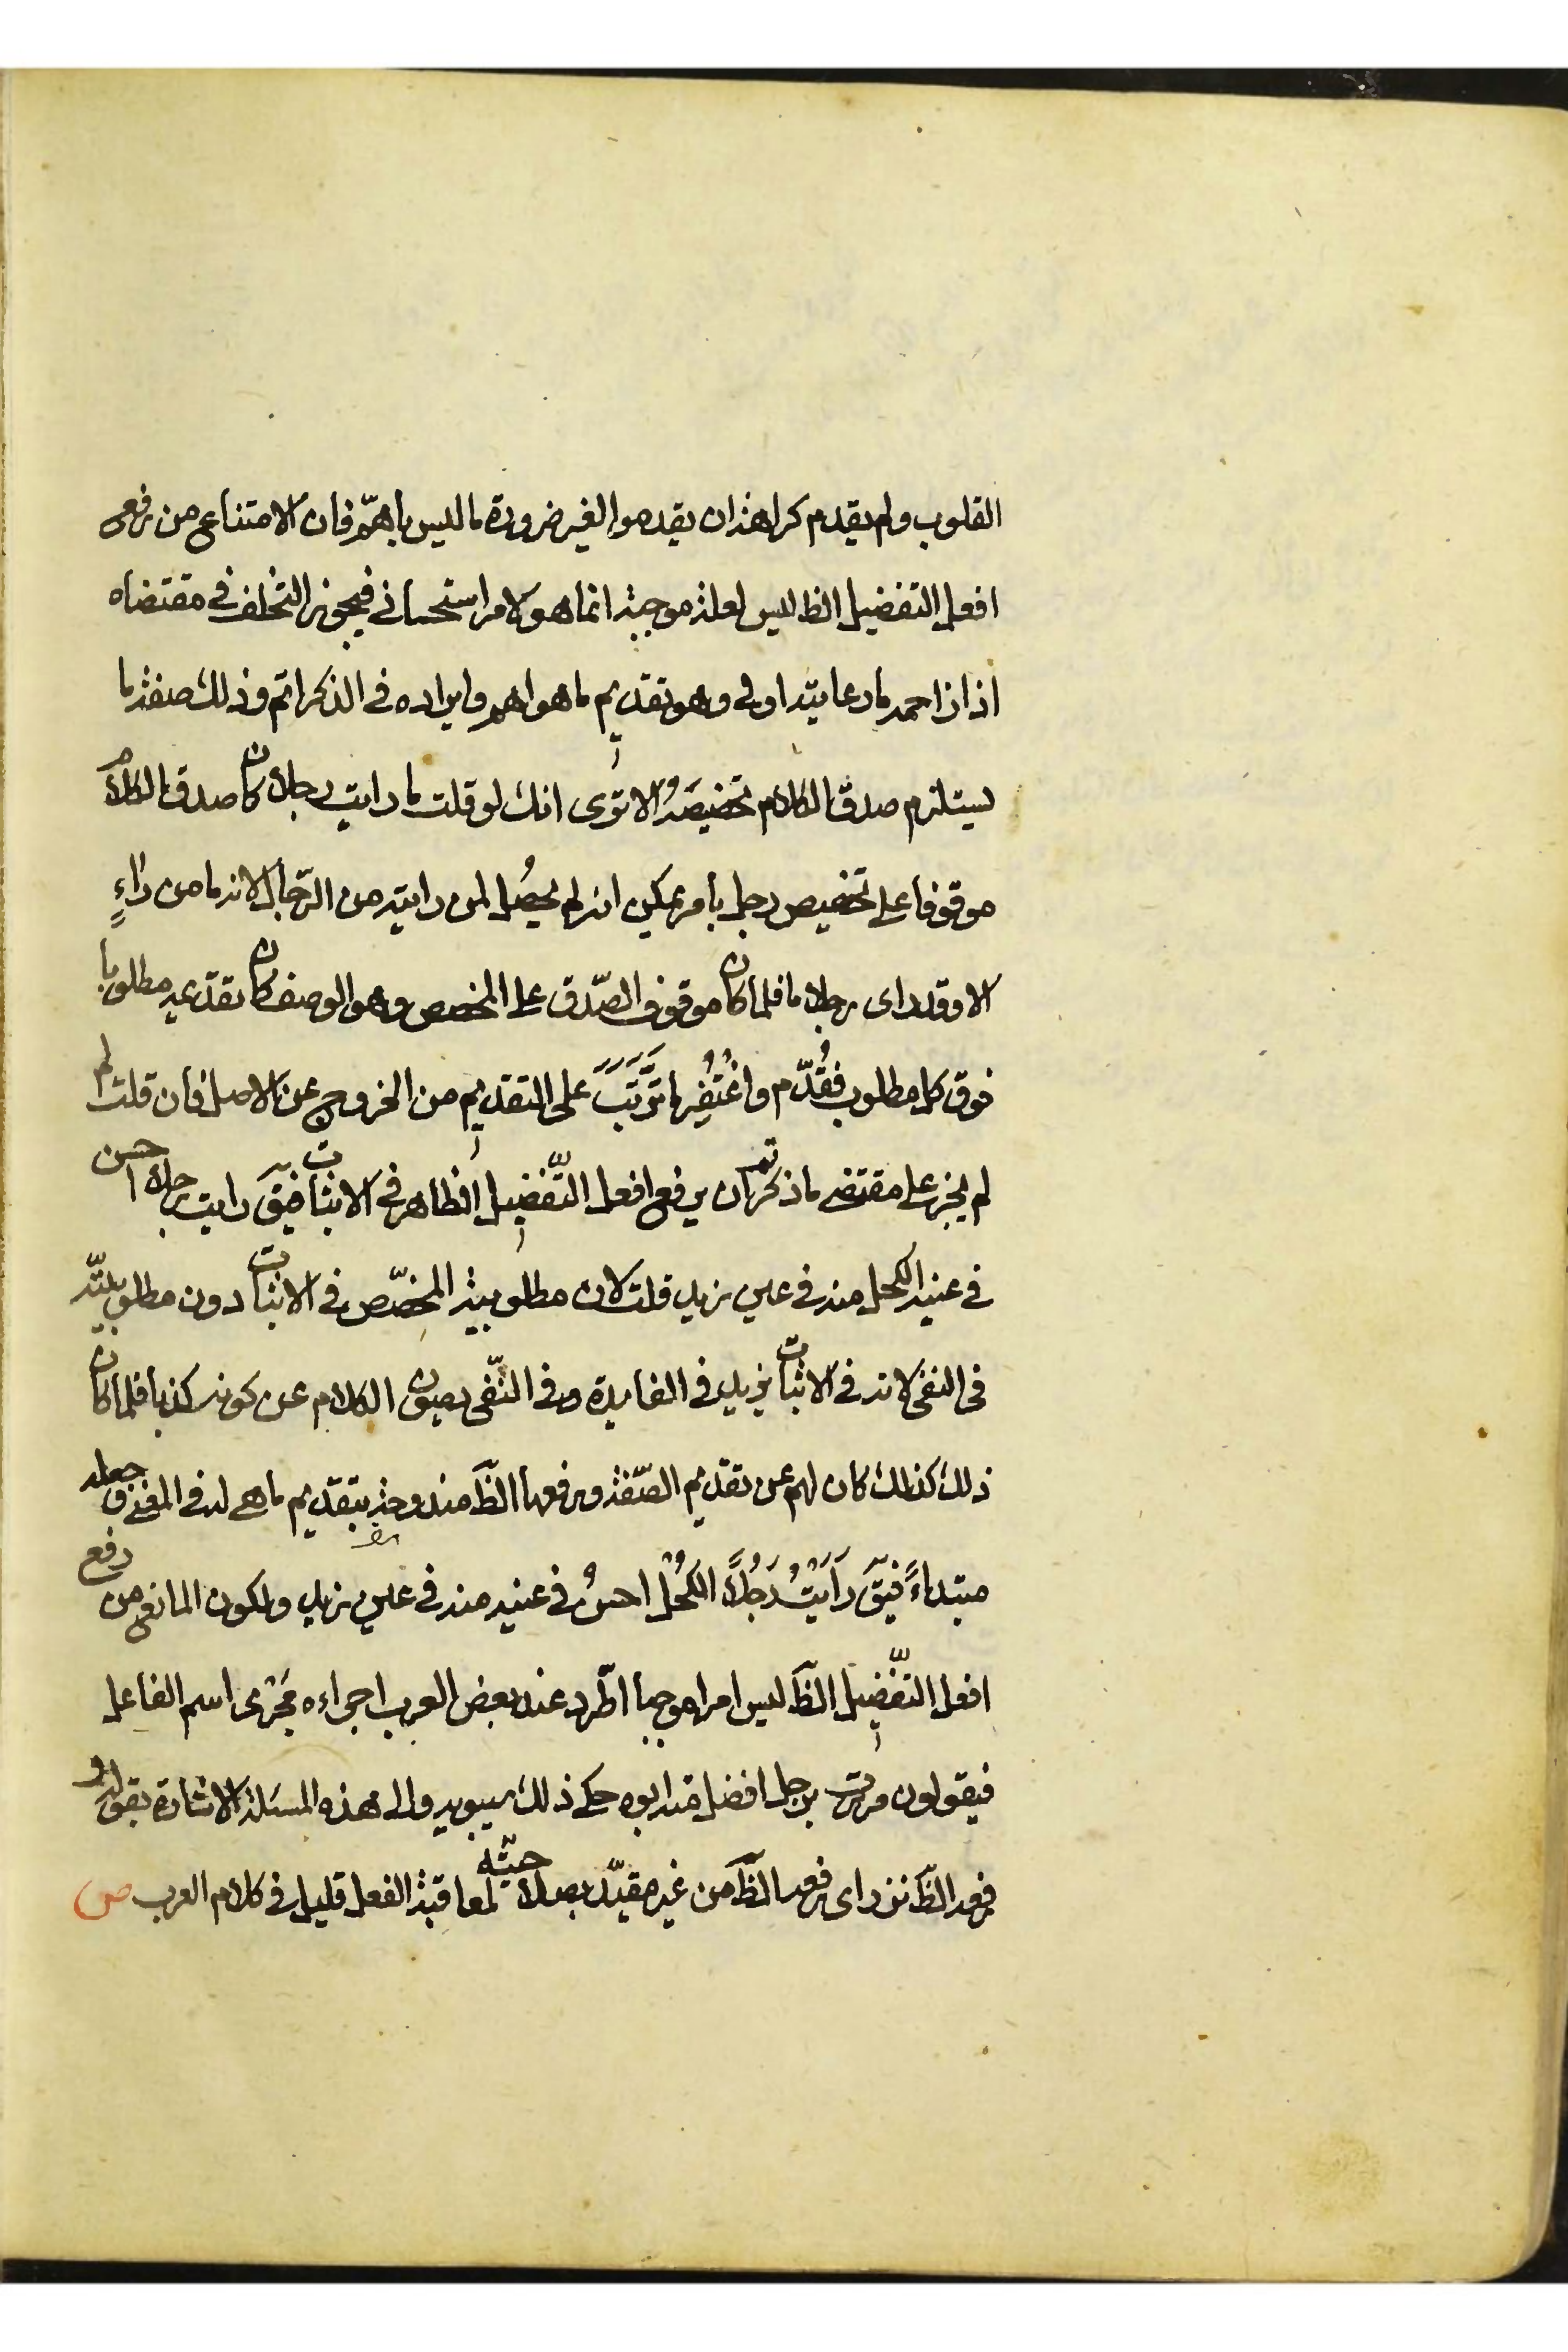 القلوب ولم يقدم كراهة ان يقدموا لغير ضرورة ما ليس باهمّ فان الامتناع من رفع
افعل التفضيل الظ ليس لعلة موجبة انما هو لامر استحسانى فيجوز التخلف فى مقتضاه
اذا زاحمه ما رعايته اولى وهو تقديم ما هو اهم وايراده فى الذكر اتم وذلك صفة ما
يستلزم صدق الكلام تخصيصه الا ترى انك لو قلت ما رايت رجلا كان صدق الكلام
موقوفا على تخصيص رجل بأمر يمكن انه لم يحصُل لمن رايته من الرّجال لانه ما من راءٍ
الا وقد راى رجلا ما فلما كان موقوف الصّدق على المخصص وهو الوصف كان تقديمه مطلوبا
فوق كل مطلوب فقُدّم واغْتُفِر ما تَرَتَّبَ على التقديم من الخروج عن الاصل فان قلت لم
لم يجز على مقتضى ما ذكرتم ان يرفع افعل التّفضيل الظاهر فى الاثبات فيقَ رايت رجلا احسن
فى عينه الكحل منه فى عين زيد قلت لان مطلوبية المخصّص فى الاثبات دون مطلوبيّته
فى النفى لانه فى الاثبات يزيد فى الفايدة وفى النّفى يصون الكلام عن كونه كذبا فلما كان
ذلك كذلك كان لهم عن تقديم الصّفة ورفعها الظَ مندوحة بتقديم ما هى له فى المعنى و جعله
مبتداءً فيقَ رَأَيْتُ رَجُلًا الكُحْلُ احسنُ فى عينه منه فى عين زيد ولكون المانع من رفع
افعل التّفضيل الظَ ليس امرا موجبا اطّرد عند بعض العرب اجراءه مَجْرى اسم الفاعل
فيقولون مررت برجل افضل منه ابوه حكى ذلك سيبويه والى هذه المسئلة الاشارة بقوله و
رفعه الظَ نزر اى رفعه الظَ من غير مقيّد بصلاحيّته لمعاقبة الفعل قليل فى كلام العرب ص